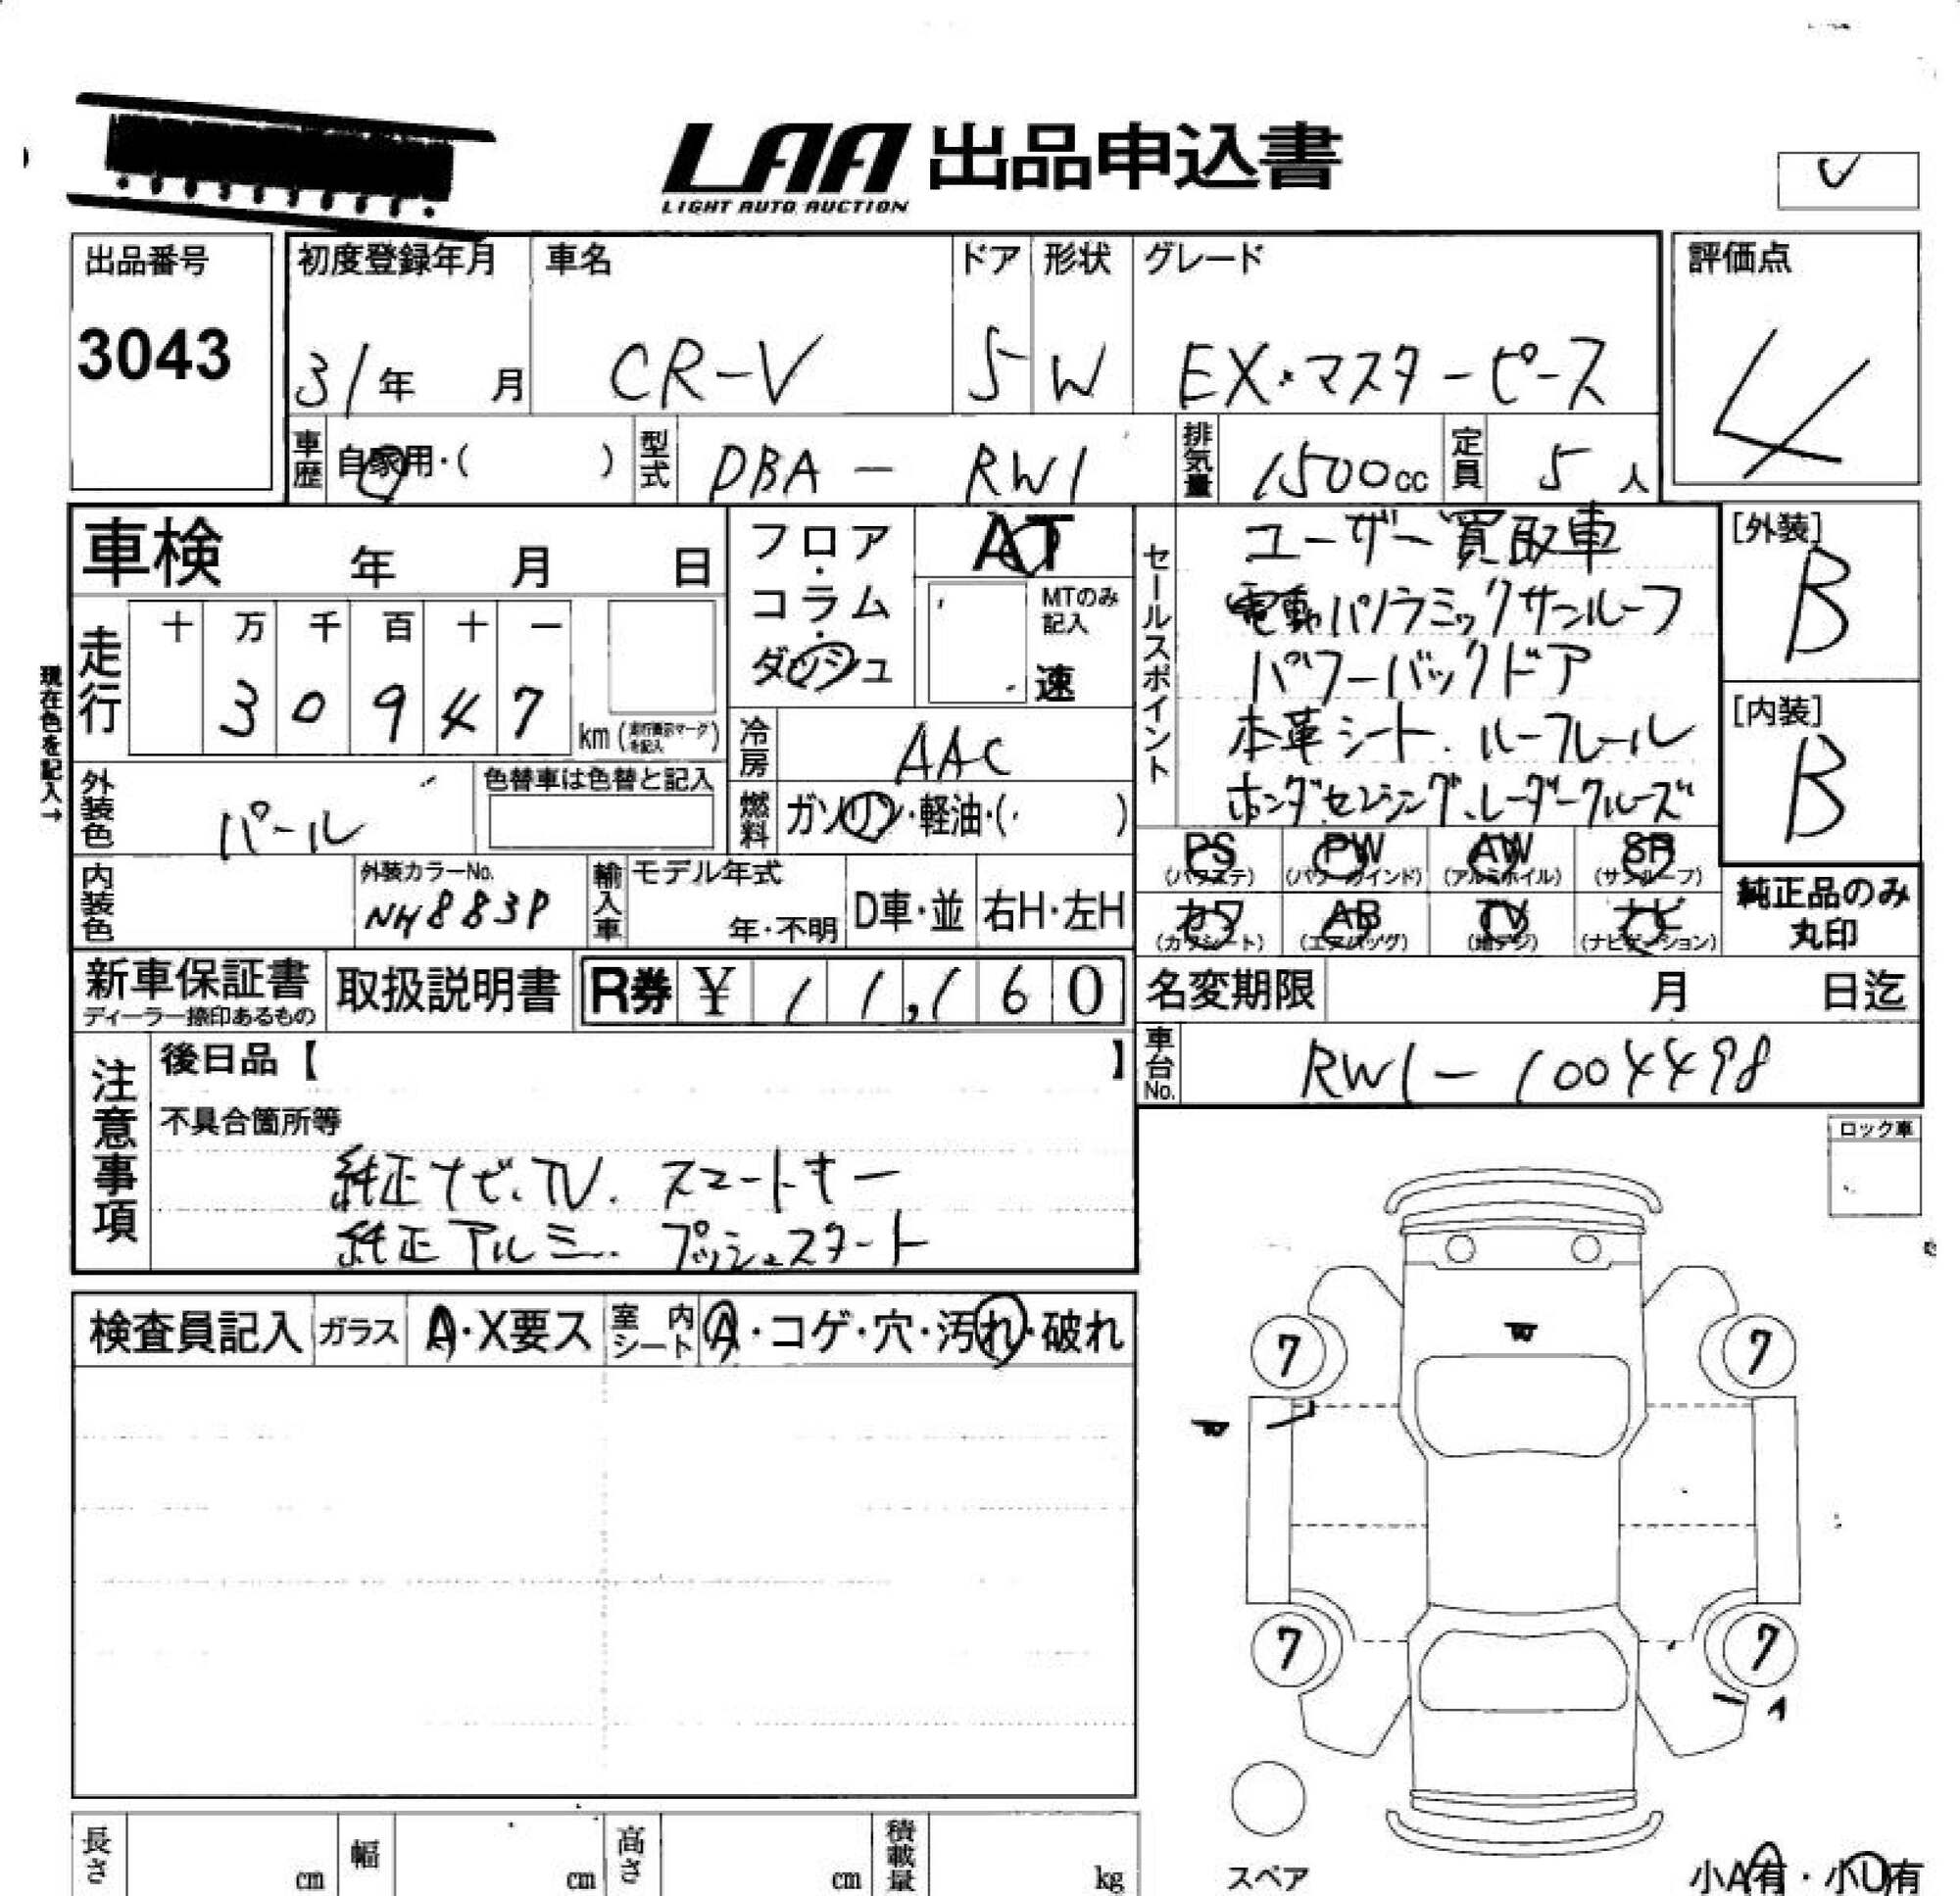 LAA 出品申込書
LIGHT AUTO AUCTION
出品番号
3043
初度登録年月
31年 月
車名
CR-V
ドア
5
形状
W
グレード
EX・マスターピース
評価点
4
車歴
自家用・( )
型式
DBA - RW1
排気量
1500cc
定員
5人
車検 年 月 日
フロア・コラム・ダッシュ
AT
MTのみ記入
速
走行
十 万 千 百 十 一
3 0 9 4 7
km (走行表示マークを記入)
現在色を記入→
冷房
AAC
外装色
パール
色替車は色替と記入
燃料
ガソリン・軽油・( )
セールスポイント
ユーザー買取車
電動パノラミックサンルーフ
パワーバックドア
本革シート. ルーフレール
ホンダセンシング、レーダークルーズ
[外装]
B
[内装]
B
PS AW PW SR
(パワステ) (パワーウインド) (アルミホイル) (サンルーフ)
カワ AB TV ナビ
(カワシート) (エアバッグ) (地デジ) (ナビゲーション)
純正品のみ
丸印
内装色
外装カラーNo.
NH883P
輸入車
モデル年式
年・不明
D車・並
右H・左H
新車保証書
ディーラー捺印あるもの
取扱説明書
R券 ¥ 11,160
名変期限 月 日迄
車台No.
RW1-1004498
注意事項
後日品【 】
不具合箇所等
純正ナビ、TV. スマートキー
純正アルミ. プッシュスタート
ロック車
検査員記入
ガラス
A・X要ス
室内シート
A・コゲ・穴・汚れ・破れ
7
7
7
7
スペア
長さ cm
幅 cm
高さ cm
積載量 kg
小A有・小U有